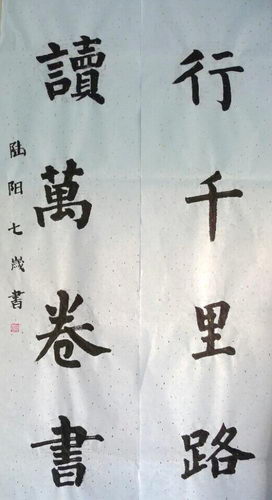 行千里路
讀萬卷書
陆阳七歲書